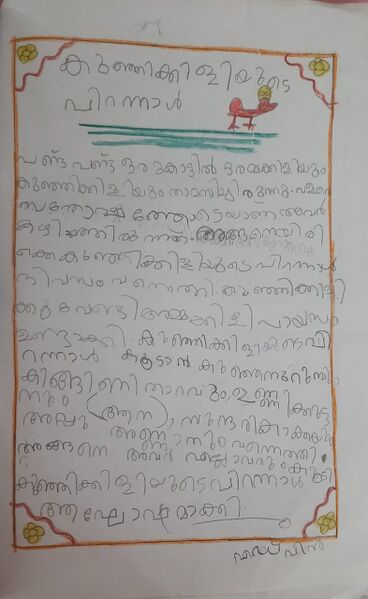 കുഞ്ഞിക്കിളിയുടെ
പിറന്നാൾ
പണ്ട് പണ്ട് ഒരു കാട്ടിൽ ഒരമ്മക്കിളിയും
കുഞ്ഞിക്കിളിയും താമസിച്ചിരുന്നു. വളരെ
സന്തോഷത്തോടെയാണ് അവർ
കഴിഞ്ഞിരുന്നത്. അങ്ങനെയിരി
ക്കെ കുഞ്ഞിക്കിളിയുടെ പിറന്നാൾ
ദിവസം വന്നെത്തി. കുഞ്ഞിക്കിളി
ക്കു വേണ്ടി അമ്മക്കിളി പായസം
ഉണ്ടാക്കി. കുഞ്ഞിക്കിളിയുടെ പി
റന്നാൾ കൂടാൻ കുഞ്ഞനുറുമ്പും
കിങ്ങിണി താറാവും, ഉണ്ണിക്കുട്ട
നും (ആന), സുന്ദരികാക്കയും
അപ്പു അണ്ണാനും വന്നെത്തി.
അങ്ങനെ അവർ എല്ലാവരും കൂടി
കുഞ്ഞിക്കിളിയുടെ പിറന്നാൾ
ആഘോഷമാക്കി.